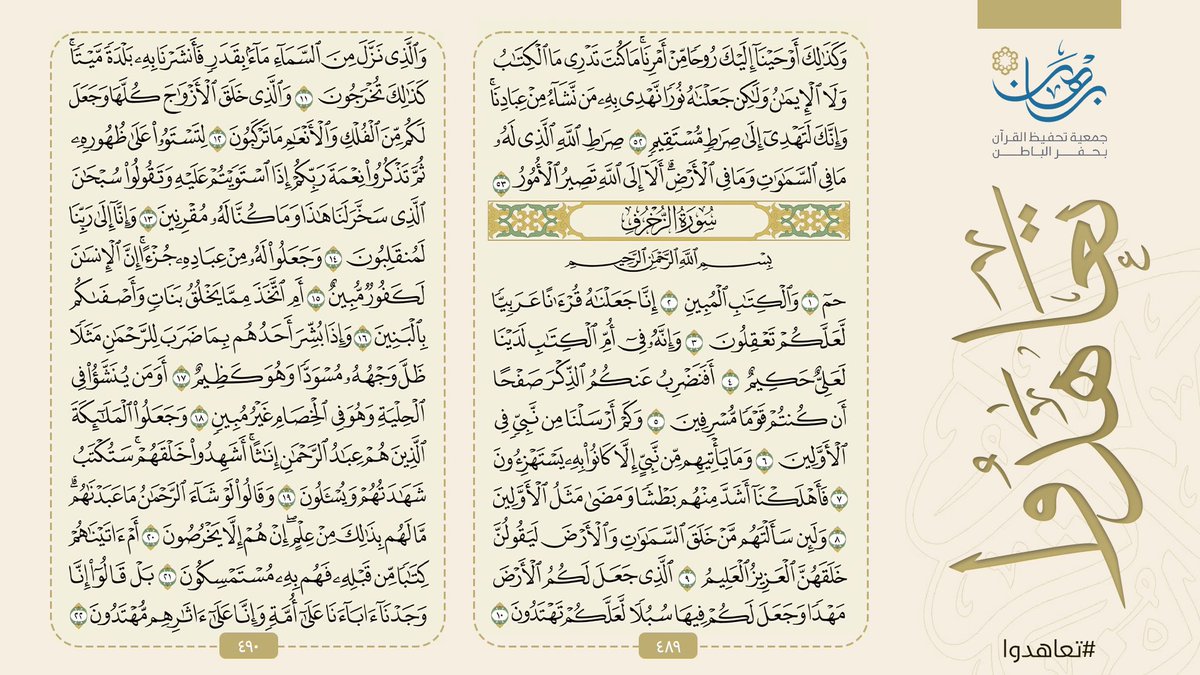 وَكَذَٰلِكَ أَوْحَيْنَآ إِلَيْكَ رُوحًا مِّنْ أَمْرِنَا ۚ مَا كُنتَ تَدْرِى مَا ٱلْكِتَٰبُ
وَلَا ٱلْإِيمَٰنُ وَلَٰكِن جَعَلْنَٰهُ نُورًا نَّهْدِى بِهِۦ مَن نَّشَآءُ مِنْ عِبَادِنَا ۚ
وَإِنَّكَ لَتَهْدِىٓ إِلَىٰ صِرَٰطٍ مُّسْتَقِيمٍ ٥٢ صِرَٰطِ ٱللَّهِ ٱلَّذِى لَهُۥ
مَا فِى ٱلسَّمَٰوَٰتِ وَمَا فِى ٱلْأَرْضِ ۗ أَلَآ إِلَى ٱللَّهِ تَصِيرُ ٱلْأُمُورُ ٥٣
سُورَةُ الزُّخْرُفِ
بِسْمِ ٱللَّهِ ٱلرَّحْمَٰنِ ٱلرَّحِيمِ
حمٓ ١ وَٱلْكِتَٰبِ ٱلْمُبِينِ ٢ إِنَّا جَعَلْنَٰهُ قُرْءَٰنًا عَرَبِيًّا
لَّعَلَّكُمْ تَعْقِلُونَ ٣ وَإِنَّهُۥ فِىٓ أُمِّ ٱلْكِتَٰبِ لَدَيْنَا
لَعَلِىٌّ حَكِيمٌ ٤ أَفَنَضْرِبُ عَنكُمُ ٱلذِّكْرَ صَفْحًا
أَن كُنتُمْ قَوْمًا مُّسْرِفِينَ ٥ وَكَمْ أَرْسَلْنَا مِن نَّبِىٍّ فِى
ٱلْأَوَّلِينَ ٦ وَمَا يَأْتِيهِم مِّن نَّبِىٍّ إِلَّا كَانُوا۟ بِهِۦ يَسْتَهْزِءُونَ
٧ فَأَهْلَكْنَآ أَشَدَّ مِنْهُم بَطْشًا وَمَضَىٰ مَثَلُ ٱلْأَوَّلِينَ
٨ وَلَئِن سَأَلْتَهُم مَّنْ خَلَقَ ٱلسَّمَٰوَٰتِ وَٱلْأَرْضَ لَيَقُولُنَّ
خَلَقَهُنَّ ٱلْعَزِيزُ ٱلْعَلِيمُ ٩ ٱلَّذِى جَعَلَ لَكُمُ ٱلْأَرْضَ
مَهْدًا وَجَعَلَ لَكُمْ فِيهَا سُبُلًا لَّعَلَّكُمْ تَهْتَدُونَ ١٠
٤٨٩
وَٱلَّذِى نَزَّلَ مِنَ ٱلسَّمَآءِ مَآءًۢ بِقَدَرٍ فَأَنشَرْنَا بِهِۦ بَلْدَةً مَّيْتًا ۚ
كَذَٰلِكَ تُخْرَجُونَ ١١ وَٱلَّذِى خَلَقَ ٱلْأَزْوَٰجَ كُلَّهَا وَجَعَلَ
لَكُم مِّنَ ٱلْفُلْكِ وَٱلْأَنْعَٰمِ مَا تَرْكَبُونَ ١٢ لِتَسْتَوُۥا۟ عَلَىٰ ظُهُورِهِۦ
ثُمَّ تَذْكُرُوا۟ نِعْمَةَ رَبِّكُمْ إِذَا ٱسْتَوَيْتُمْ عَلَيْهِ وَتَقُولُوا۟ سُبْحَٰنَ
ٱلَّذِى سَخَّرَ لَنَا هَٰذَا وَمَا كُنَّا لَهُۥ مُقْرِنِينَ ١٣ وَإِنَّآ إِلَىٰ رَبِّنَا
لَمُنقَلِبُونَ ١٤ وَجَعَلُوا۟ لَهُۥ مِنْ عِبَادِهِۦ جُزْءًا ۚ إِنَّ ٱلْإِنسَٰنَ
لَكَفُورٌ مُّبِينٌ ١٥ أَمِ ٱتَّخَذَ مِمَّا يَخْلُقُ بَنَاتٍ وَأَصْفَىٰكُم
بِٱلْبَنِينَ ١٦ وَإِذَا بُشِّرَ أَحَدُهُم بِمَا ضَرَبَ لِلرَّحْمَٰنِ مَثَلًا
ظَلَّ وَجْهُهُۥ مُسْوَدًّا وَهُوَ كَظِيمٌ ١٧ أَوَمَن يُنَشَّؤُا۟ فِى
ٱلْحِلْيَةِ وَهُوَ فِى ٱلْخِصَامِ غَيْرُ مُبِينٍ ١٨ وَجَعَلُوا۟ ٱلْمَلَٰٓئِكَةَ
ٱلَّذِينَ هُمْ عِبَٰدُ ٱلرَّحْمَٰنِ إِنَٰثًا ۚ أَشَهِدُوا۟ خَلْقَهُمْ ۚ سَتُكْتَبُ
شَهَٰدَتُهُمْ وَيُسْـَٔلُونَ ١٩ وَقَالُوا۟ لَوْ شَآءَ ٱلرَّحْمَٰنُ مَا عَبَدْنَٰهُم ۗ
مَّا لَهُم بِذَٰلِكَ مِنْ عِلْمٍ ۖ إِنْ هُمْ إِلَّا يَخْرُصُونَ ٢٠ أَمْ ءَاتَيْنَٰهُمْ
كِتَٰبًا مِّن قَبْلِهِۦ فَهُم بِهِۦ مُسْتَمْسِكُونَ ٢١ بَلْ قَالُوٓا۟ إِنَّا
وَجَدْنَآ ءَابَآءَنَا عَلَىٰٓ أُمَّةٍ وَإِنَّا عَلَىٰٓ ءَاثَٰرِهِم مُّهْتَدُونَ ٢٢
٤٩٠
برهان
جمعية تحفيظ القرآن
بحفر الباطن
تعاهدوا
#تعاهدوا